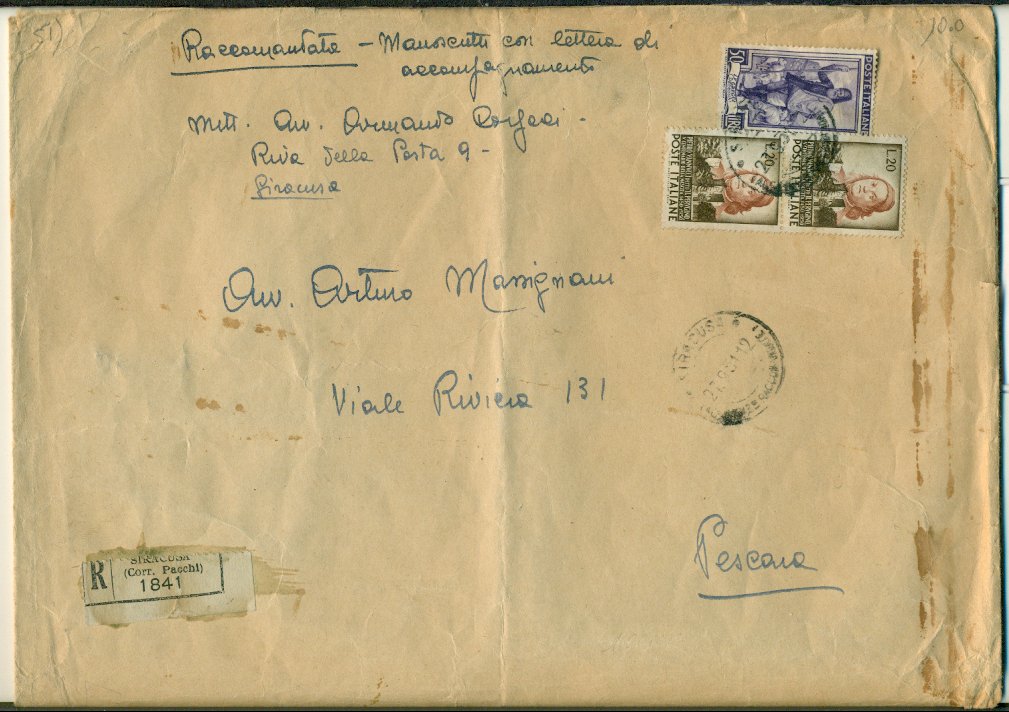 51)
Raccomandata - Manoscritti con lettera di
accompagnamento
Mitt. Avv. Armando
Riva della Posta 9 -
Siracusa
50
LIRE
POSTE ITALIANE
L.20
POSTE ITALIANE
POSTE ITALIANE
Avv. Arturo Massignani
Viale Riviera 131
SIRACUSA
Pescara
R
SIRACUSA
(Corr. Pacchi)
1841